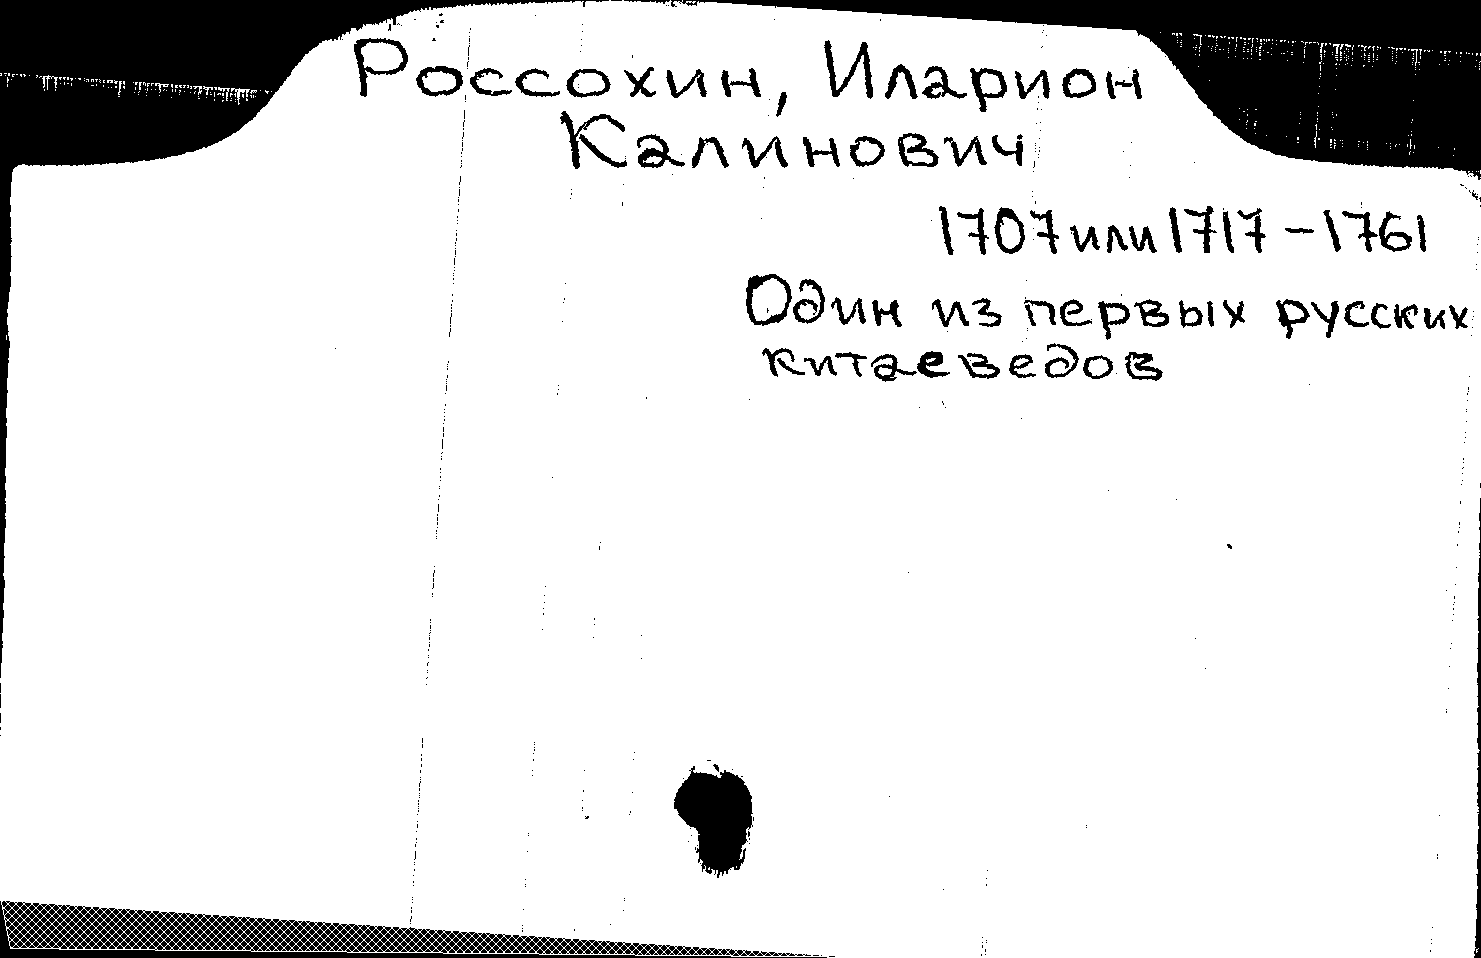 Россохин, Иларион
Калинович
1707 или 1717 – 1761
Один из первых русских
китаеведов